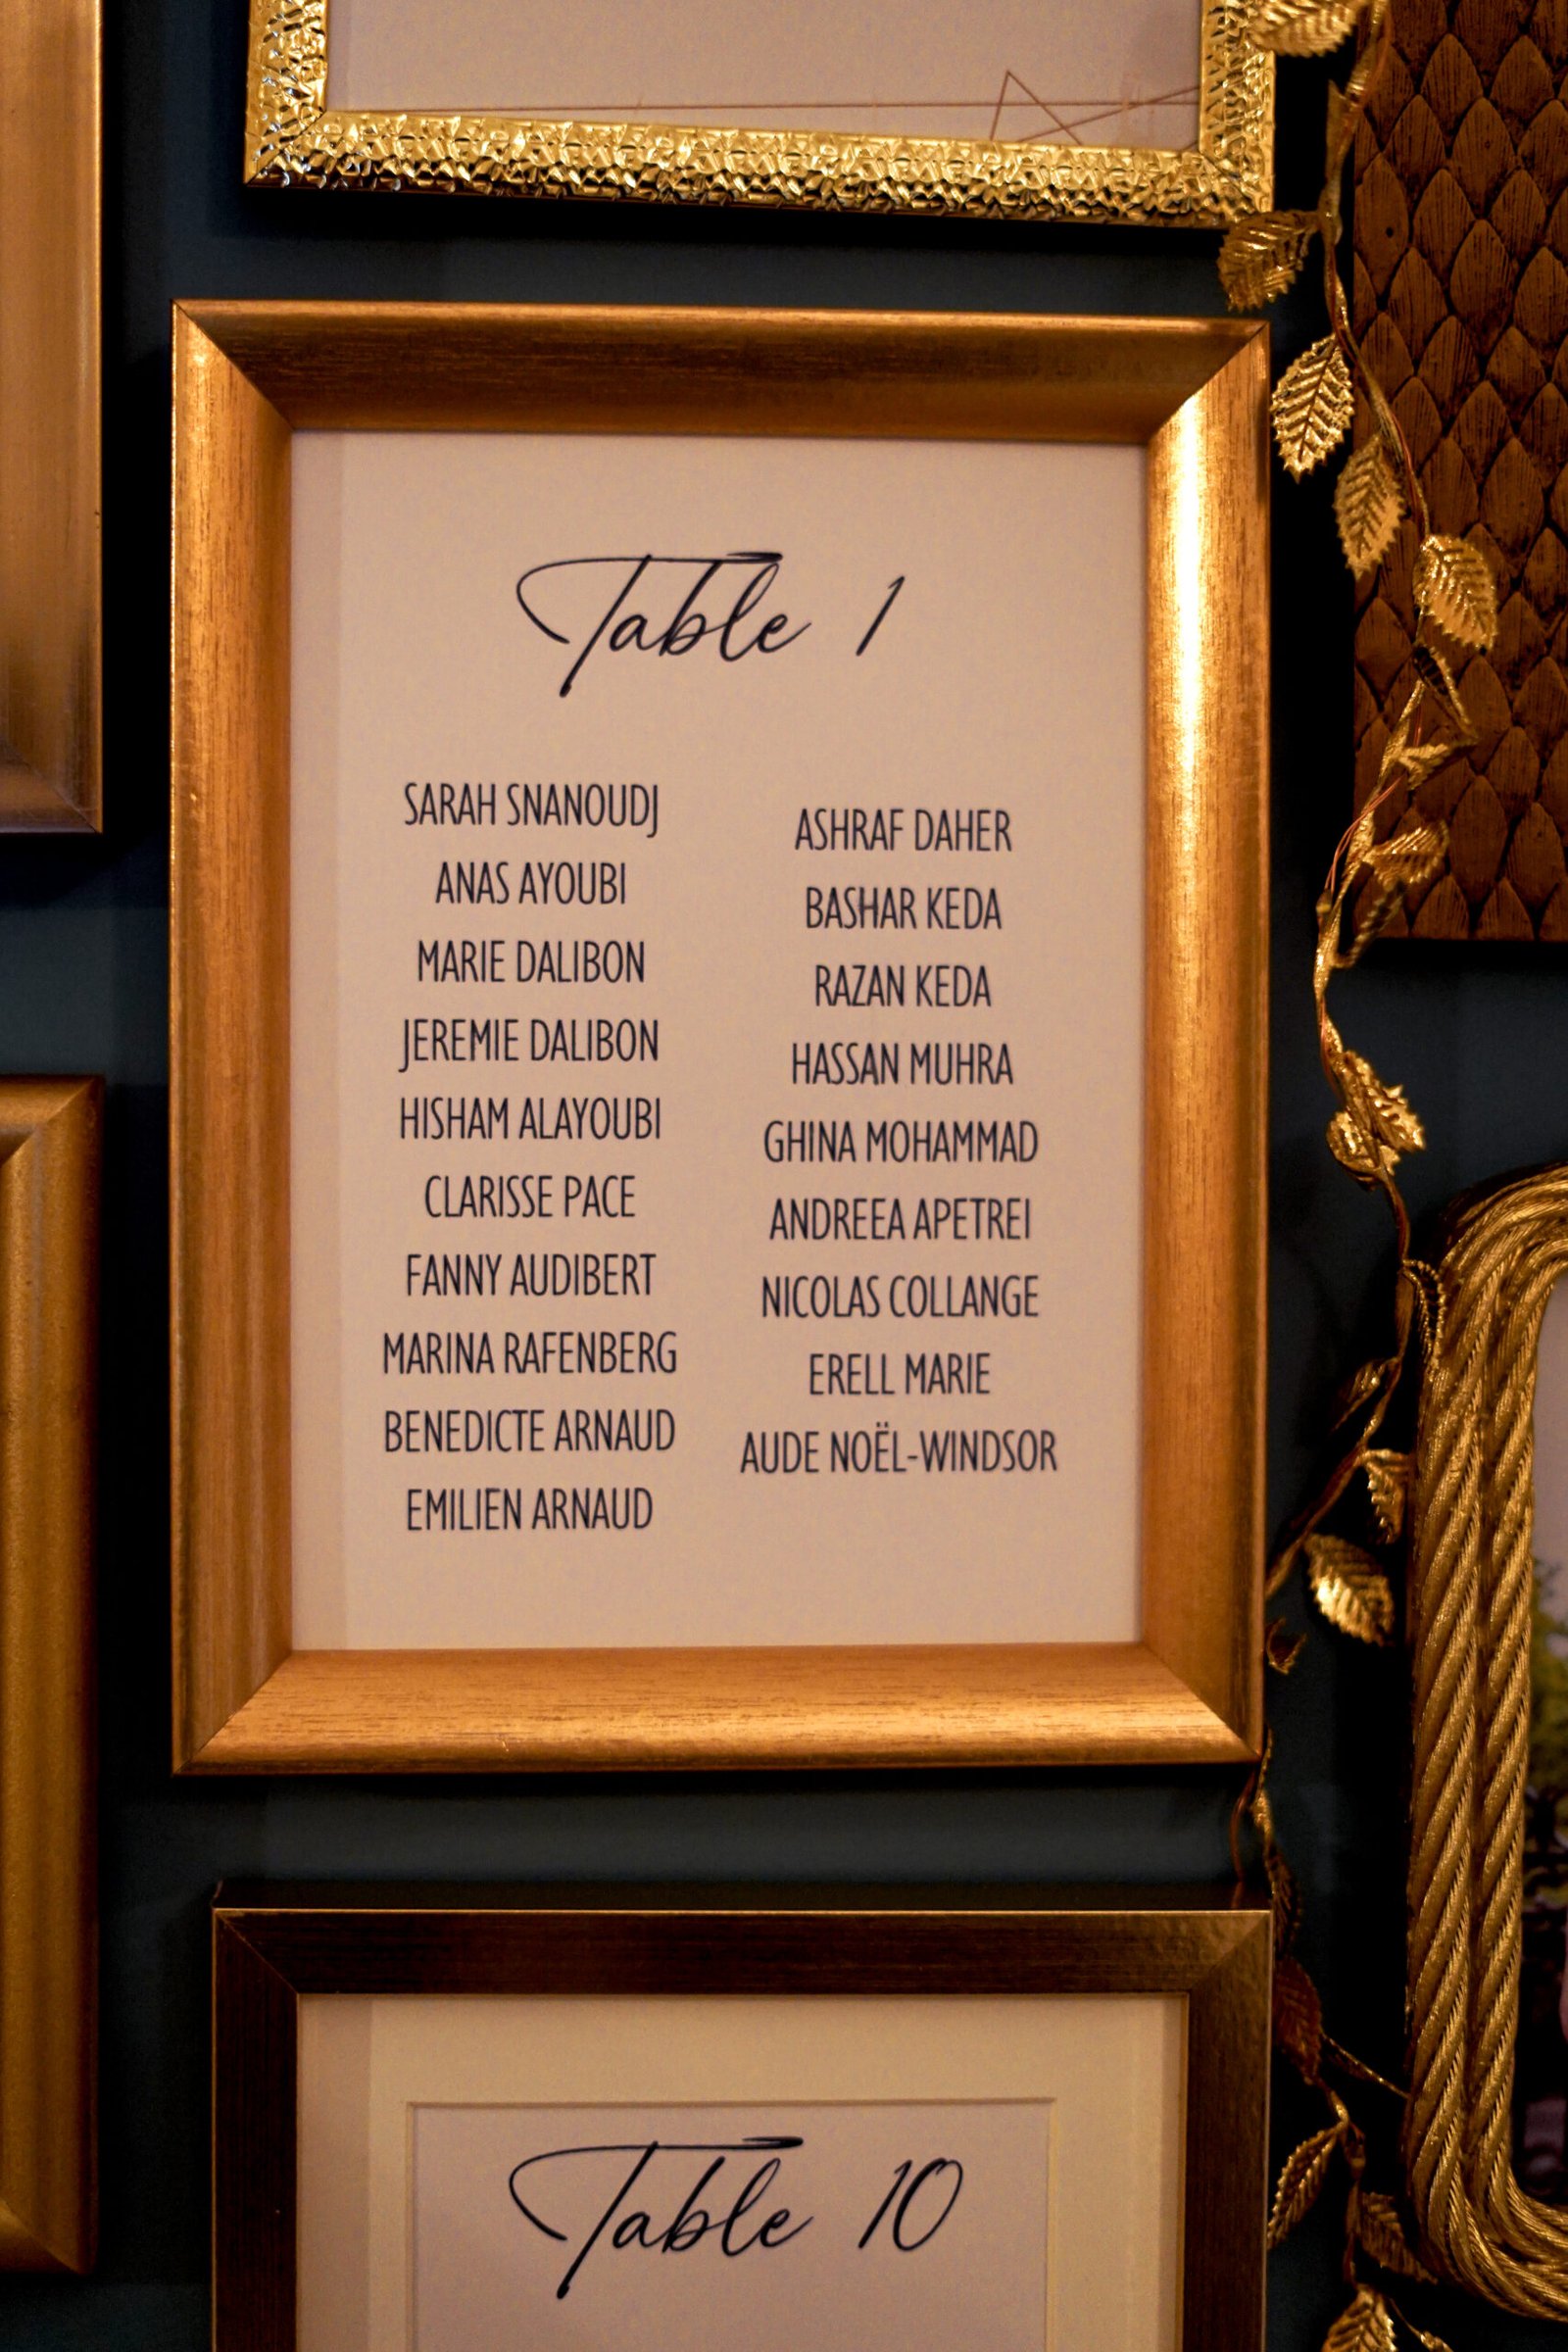 Table 1
SARAH SNANOUDJ
ANAS AYOUBI
MARIE DALIBON
JEREMIE DALIBON
HISHAM ALAYOUBI
CLARISSE PACE
FANNY AUDIBERT
MARINA RAFENBERG
BENEDICTE ARNAUD
EMILIEN ARNAUD
ASHRAF DAHER
BASHAR KEDA
RAZAN KEDA
HASSAN MUHRA
GHINA MOHAMMAD
ANDREEA APETREI
NICOLAS COLLANGE
ERELL MARIE
AUDE NOËL-WINDSOR
Table 10